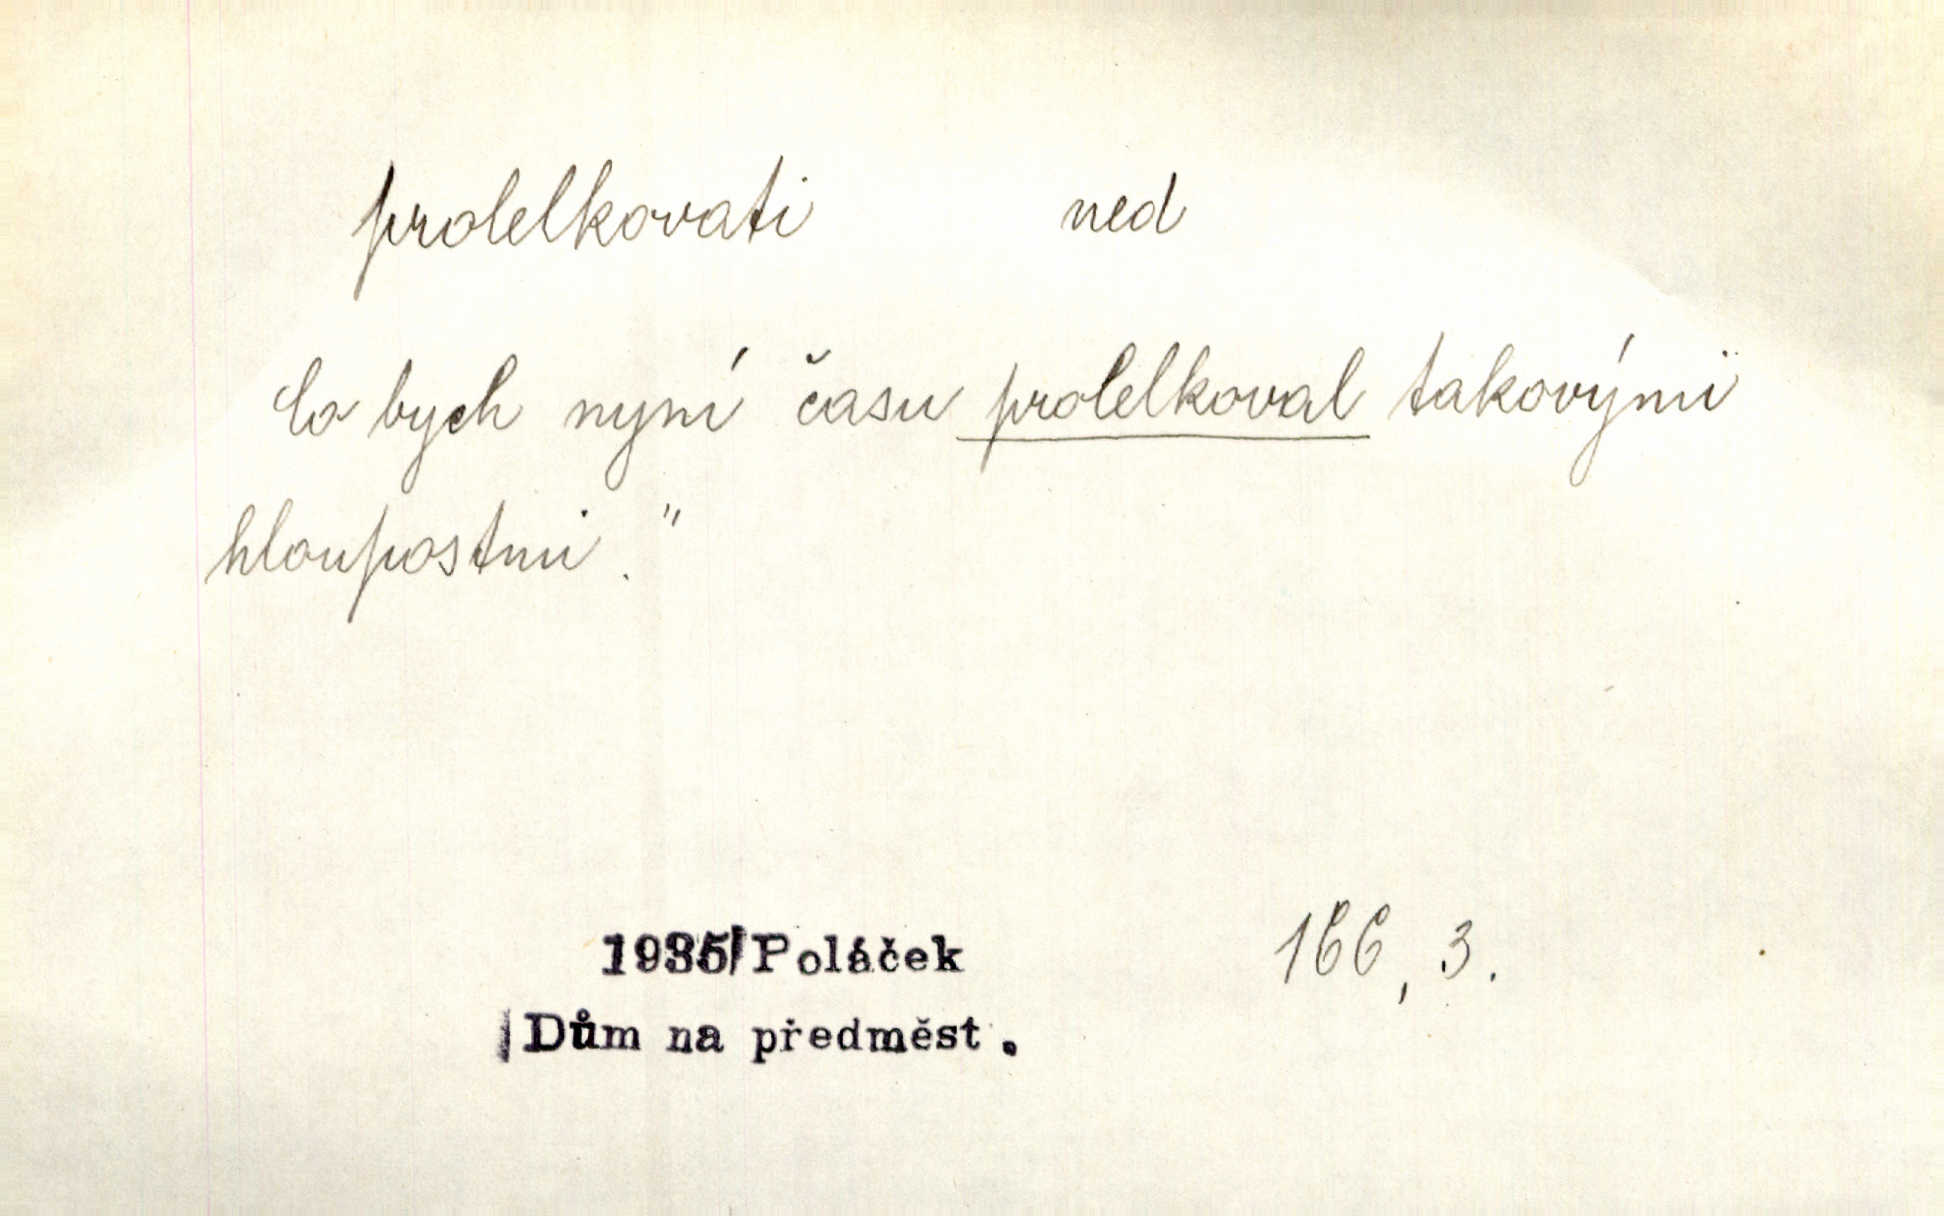 prolelkovati ned
Co bych nyní času prolelkoval takovými
hloupostmi."
1935 Poláček 166, 3.
Dům na předměst.